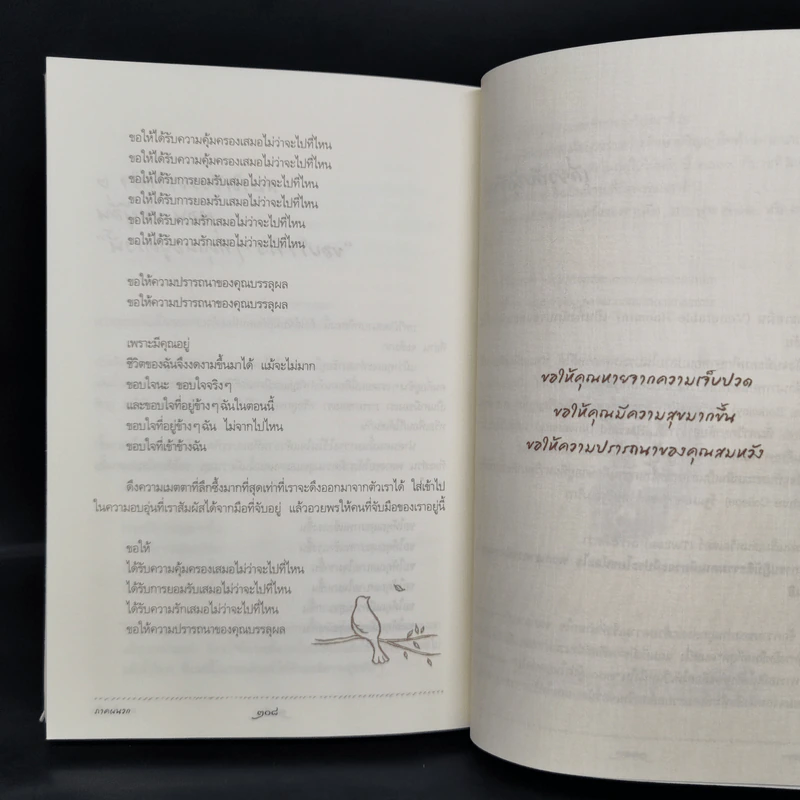 ขอให้ได้รับความคุ้มครองเสมอไม่ว่าจะไปที่ไหน
ขอให้ได้รับความคุ้มครองเสมอไม่ว่าจะไปที่ไหน
ขอให้ได้รับการยอมรับเสมอไม่ว่าจะไปที่ไหน
ขอให้ได้รับการยอมรับเสมอไม่ว่าจะไปที่ไหน
ขอให้ได้รับความรักเสมอไม่ว่าจะไปที่ไหน
ขอให้ได้รับความรักเสมอไม่ว่าจะไปที่ไหน
ขอให้ความปรารถนาของคุณบรรลุผล
ขอให้ความปรารถนาของคุณบรรลุผล
เพราะมีคุณอยู่
ชีวิตของฉันจึงงดงามขึ้นมาได้ แม้จะไม่มาก
ขอบใจนะ ขอบใจจริงๆ
และขอบใจที่อยู่ข้างๆ ฉันในตอนนี้
ขอบใจที่อยู่ข้างๆ ฉัน ไม่จากไปไหน
ขอบใจที่เข้าข้างฉัน
ดึงความเมตตาที่ลึกซึ้งมากที่สุดเท่าที่เราจะดึงออกมาจากตัวเราได้ ใส่เข้าไป
ในความอบอุ่นที่เราสัมผัสได้จากมือที่จับอยู่ แล้วอวยพรให้คนที่จับมือของเราอยู่นี้
ขอให้
ได้รับความคุ้มครองเสมอไม่ว่าจะไปที่ไหน
ได้รับการยอมรับเสมอไม่ว่าจะไปที่ไหน
ได้รับความรักเสมอไม่ว่าจะไปที่ไหน
ขอให้ความปรารถนาของคุณบรรลุผล
ภาคผนวก
๑๐๘
ขอให้คุณหายจากความเจ็บปวด
ขอให้คุณมีความสุขมากขึ้น
ขอให้ความปรารถนาของคุณสมหวัง